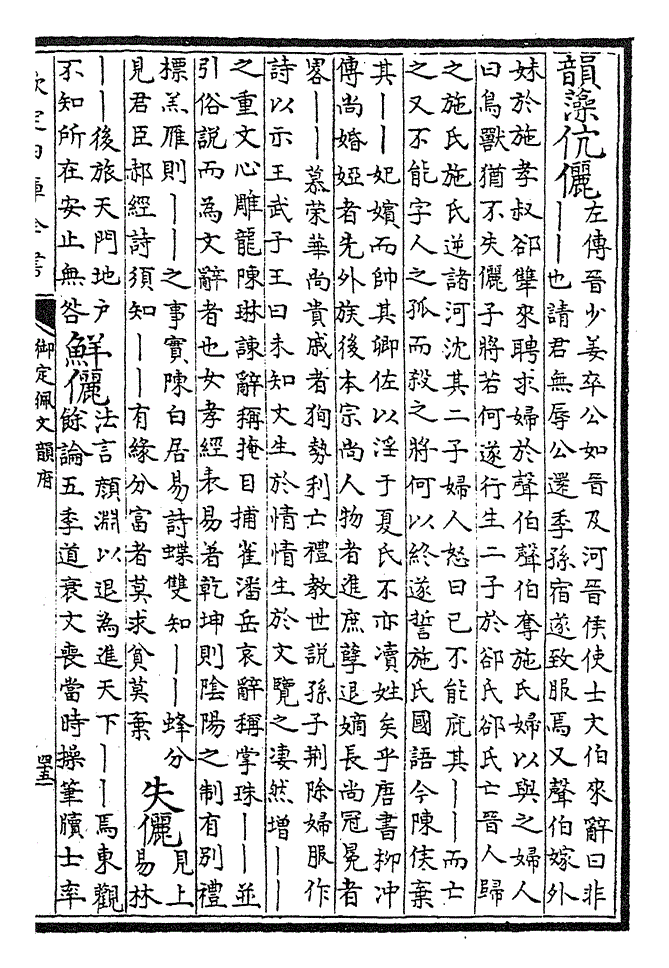 韻藻伉儷
左傳晉少姜卒公如晉及河晉侯使士文伯來辭曰非
——也請君無辱公還季孫宿遂致服焉又聲伯嫁外
妹於施孝叔郤犨來聘求婦於聲伯聲伯奪施氏婦以與之婦人
曰鳥獸猶不失儷子將若何遂行生二子於郤氏郤氏亡晉人歸
之施氏施氏逆諸河沈其二子婦人怒曰已不能庇其——而亡
之又不能字人之孤而殺之將何以終遂誓施氏國語今陳侯棄
其——妃嬪而帥其卿佐以淫于夏氏不亦凟姓矣乎唐書柳冲
傳尚婚婭者先外族後本宗尚人物者進庶孽退嫡長尚冠冕者
畧——慕榮華尚貴戚者狥勢利亡禮教世説孫子荆除婦服作
詩以示王武子王曰未知文生於情情生於文覽之凄然增——
之重文心雕龍陳琳諫辭稱掩目捕雀潘岳哀辭稱掌珠——並
引俗説而為文辭者也女孝經表易著乾坤則陰陽之制有別禮
標羔雁則——之事實陳白居易詩蝶雙知——蜂分
見君臣郝經詩須知——有緣分富者莫求貧莫棄
失儷
見上
易林
——後旅天門地户
不知所在安止無咎
鮮儷
法言顔淵以退為進天下——焉東觀
餘論五季道衰文喪當時操筆牘士率
欽定四庫全書
御定佩文韻府